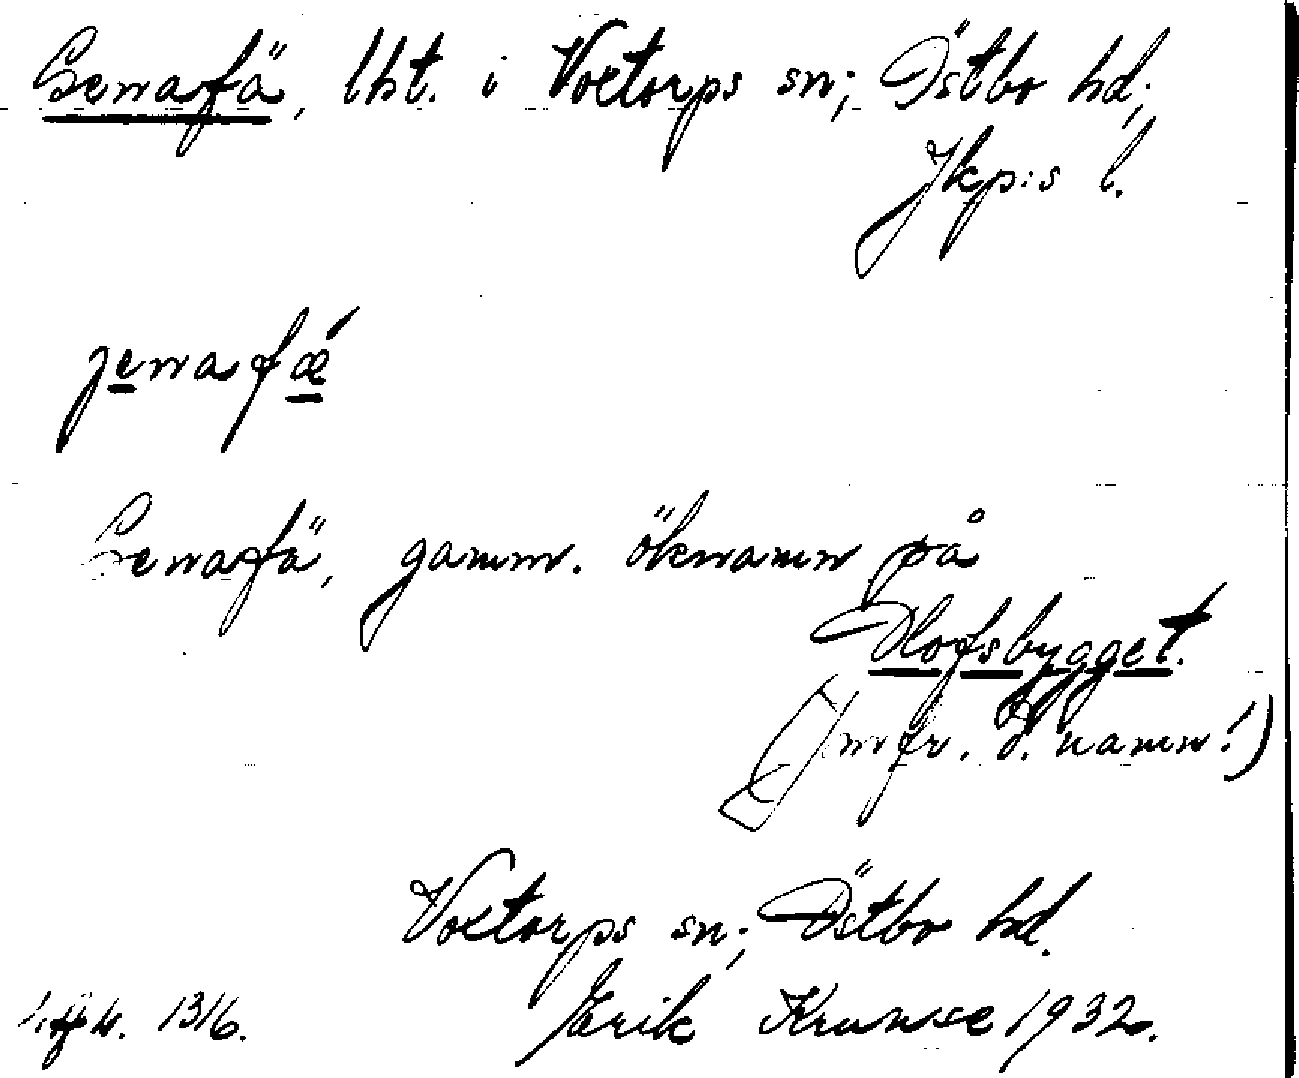 Genafä, lht. i Voxtorps sn; Östbo hd;
Jkp:s l.
jenafǽ
Genafä, gamm. öknamn på
Olofsbygget.
(Jmfr. d. namn!)
Voxtorps sn; Östbo hd.
13/6. Erik Kruuse 1932.